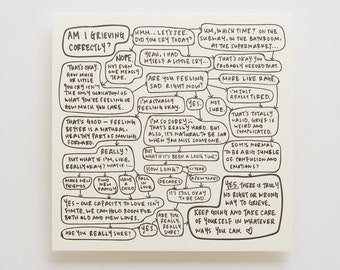 AM I GRIEVING
CORRECTLY?
HMM... LET'S SEE.
DID YOU CRY TODAY?
UM, WHICH TIME? ON THE
SUBWAY, IN THE BATHROOM,
AT THE SUPERMARKET...
NOPE.
NOT EVEN
ONE MEASLY
TEAR.
YEAH, I HAD
MYSELF A LITTLE CRY...
THAT'S OKAY. YOU
PROBABLY NEEDED THAT.
THAT'S OKAY.
HOW MUCH
OR LITTLE
YOU CRY ISN'T
THE ONLY INDICATION OF
WHAT YOU'RE FEELING OR
HOW MUCH YOU CARE.
ARE YOU FEELING
SAD RIGHT NOW?
MORE LIKE RAGE
I'M JUST
REALLY TIRED.
I'M ACTUALLY
FEELING OKAY.
YES.
NOT
SURE.
THAT'S TOTALLY
VALID. GRIEF IS
WEIRD AND
COMPLICATED.
THAT'S GOOD— FEELING
BETTER IS A NATURAL,
HEALTHY PART OF MOVING
FORWARD.
I'M SO SORRY.
THAT'S REALLY HARD. BUT
ALSO, IT'S NATURAL TO BE SAD
WHEN YOU MISS SOMEONE.
REALLY?
BUT WHAT IF I'M, LIKE,
REALLY OKAY? WHAT IF I...
BUT
WHAT IF IT'S BEEN A LONG TIME?
SO IT'S NORMAL
TO BE A BIG TUMBLE
OF CONFUSION AND
EMOTIONS?
HOW LONG?
1 YEAR
A FEW YEARS
DECADES
MAKE NEW
FRIENDS
FIND
NEW
FAMILY
HAVE
FUN
FALL
IN
LOVE
IT'S STILL OKAY
TO BE SAD.
YES, THERE IS TRULY
NO RIGHT OR WRONG
WAY TO GRIEVE.
KEEP GOING AND TAKE CARE
OF YOURSELF IN WHATEVER
WAYS YOU CAN. ♡
YES— OUR CAPACITY TO LOVE ISN'T
FINITE. WE CAN HOLD ROOM FOR
BOTH OLD AND NEW LOVES.
ARE YOU
REALLY,
REALLY
SURE?
ARE YOU REALLY SURE?
YES